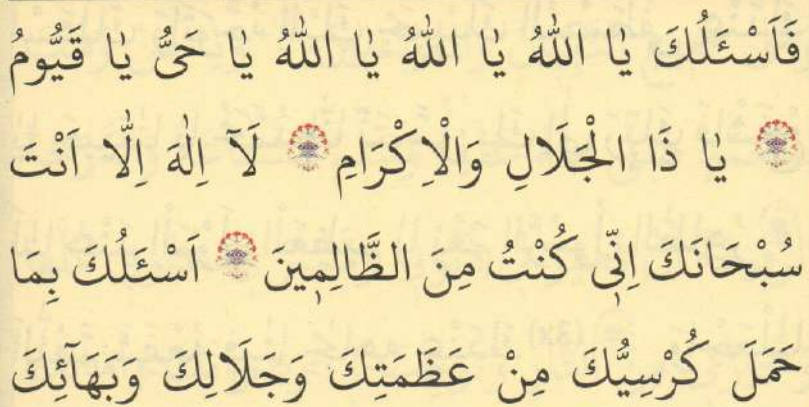 فَاَسْئَلُكَ يَا اللّٰهُ يَا اللّٰهُ يَا اللّٰهُ يَا حَىُّ يَا قَيُّومُ
يَا ذَا الْجَلَالِ وَالْاِكْرَامِ لَآ اِلٰهَ اِلَّا اَنْتَ
سُبْحَانَكَ اِنّٖى كُنْتُ مِنَ الظَّالِمٖينَ اَسْئَلُكَ بِمَا
حَمَلَ كُرْسِيُّكَ مِنْ عَظَمَتِكَ وَجَلَالِكَ وَبَهَآئِكَ